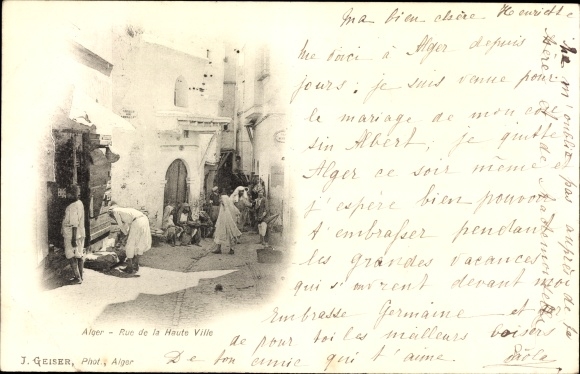 Ma bien chère Henriette
Me voici à Alger depuis
jours ; je suis venue pour
le mariage de mon cou
sin Albert ; je quitte
Alger ce soir même et
j'espère bien pouvoir
t'embrasser pendant
les grandes vacances
qui s'ouvrent devant moi
Embrasse Germaine et
de pour toi les meilleurs baisers
De ton amie qui t'aime.
m'oublier pas auprès de ta
Mère et de
Alger - Rue de la Haute Ville
J. GEISER, Phot., Alger